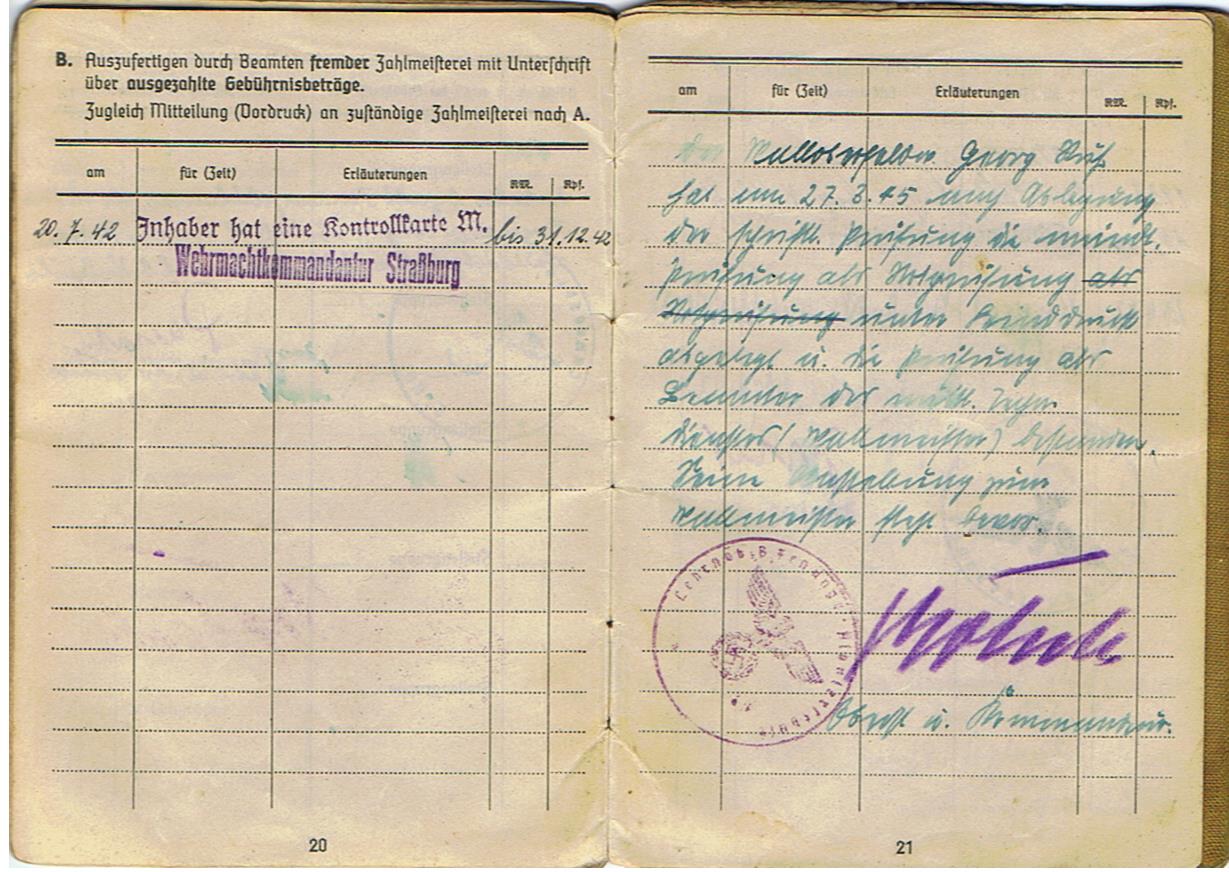 B. Auszufertigen durch Beamten fremder Zahlmeisterei mit Unterschrift
über ausgezahlte Gebührnisbeträge.
Zugleich Mitteilung (Vordruck) an zuständige Zahlmeisterei nach A.
am für (Zeit) Erläuterungen RM. Rpf.
20. 7. 42 Inhaber hat eine Kontrollkarte M. bis 31.12.42
Wehrmachtkommandantur Straßburg
20
am für (Zeit) Erläuterungen RM. Rpf.
Der Georg
hat am 27.3.45 nach Ablegung
der schriftl. Prüfung die mündl.
Prüfung als Notprüfung als
Notprüfung unter Feinddruck
abgelegt u. die Prüfung als
Beamter des techn.
Dienstes (Wallmeister) bestanden.
Seine Anstellung zum
Wallmeister steht bevor.
Oberst u. Kommandeur.
21